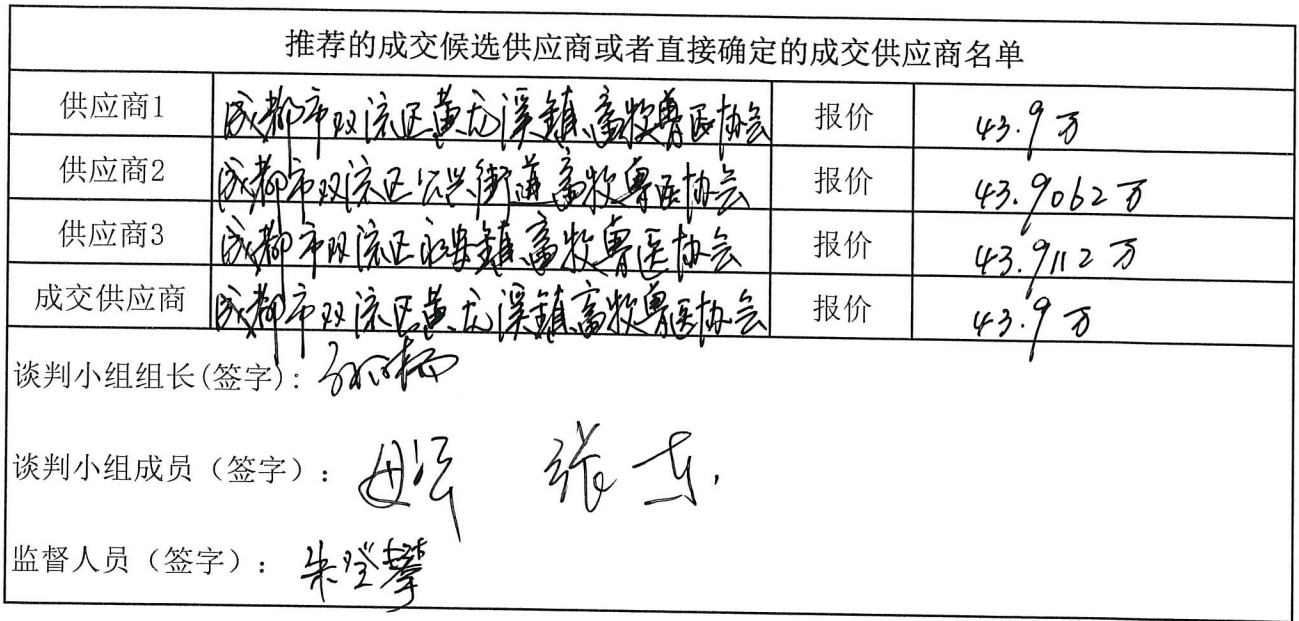 推荐的成交候选供应商或者直接确定的成交供应商名单
供应商1 成都市双流区黄龙溪镇畜牧兽医协会 报价 43.9万
供应商2 成都市双流区公兴街道畜牧兽医协会 报价 43.9062万
供应商3 成都市双流区永安镇畜牧兽医协会 报价 43.9112万
成交供应商 成都市双流区黄龙溪镇畜牧兽医协会 报价 43.9万
谈判小组组长(签字):
谈判小组成员（签字）: 张
监督人员（签字）: 朱登攀